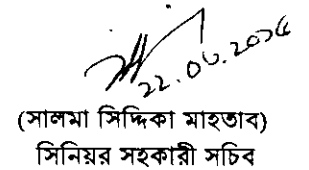 22.06.2026
(সালমা সিদ্দিকা মাহতাব)
সিনিয়র সহকারী সচিব